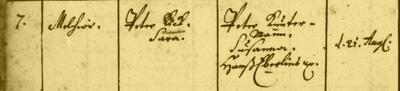 7. Melchior. Peter
Sara.
Peter Küter-
Mann.
Susanna.
Hanß Eberlins ux.
d. 21. Aug: